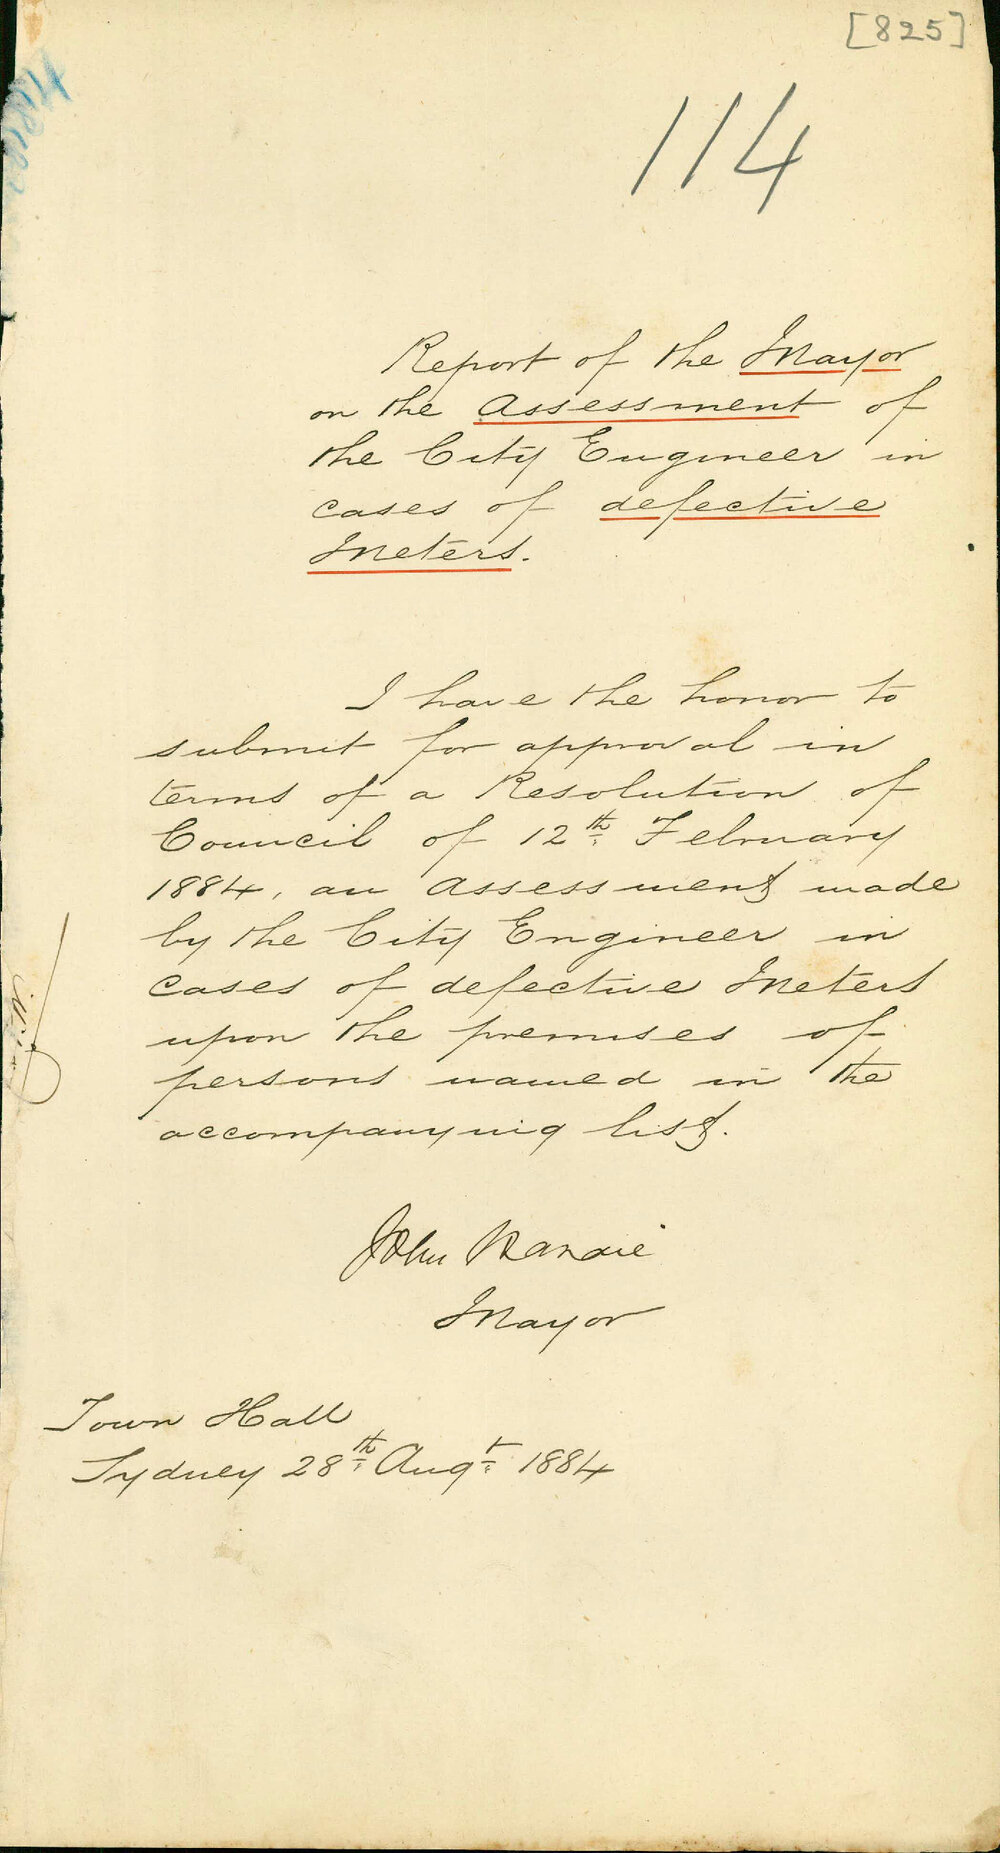 [825]
114
Report of the Mayor
on the Assessment of
the City Engineer in
cases of defective
Meters.
I have the honor to
submit for approval in
terms of a Resolution of
Council of 12th February
1884, an Assessment made
by the City Engineer in
cases of defective Meters
upon the premises of
persons named in the
accompanying list.
John Hardie
Mayor
Town Hall
Sydney 28th Augt 1884